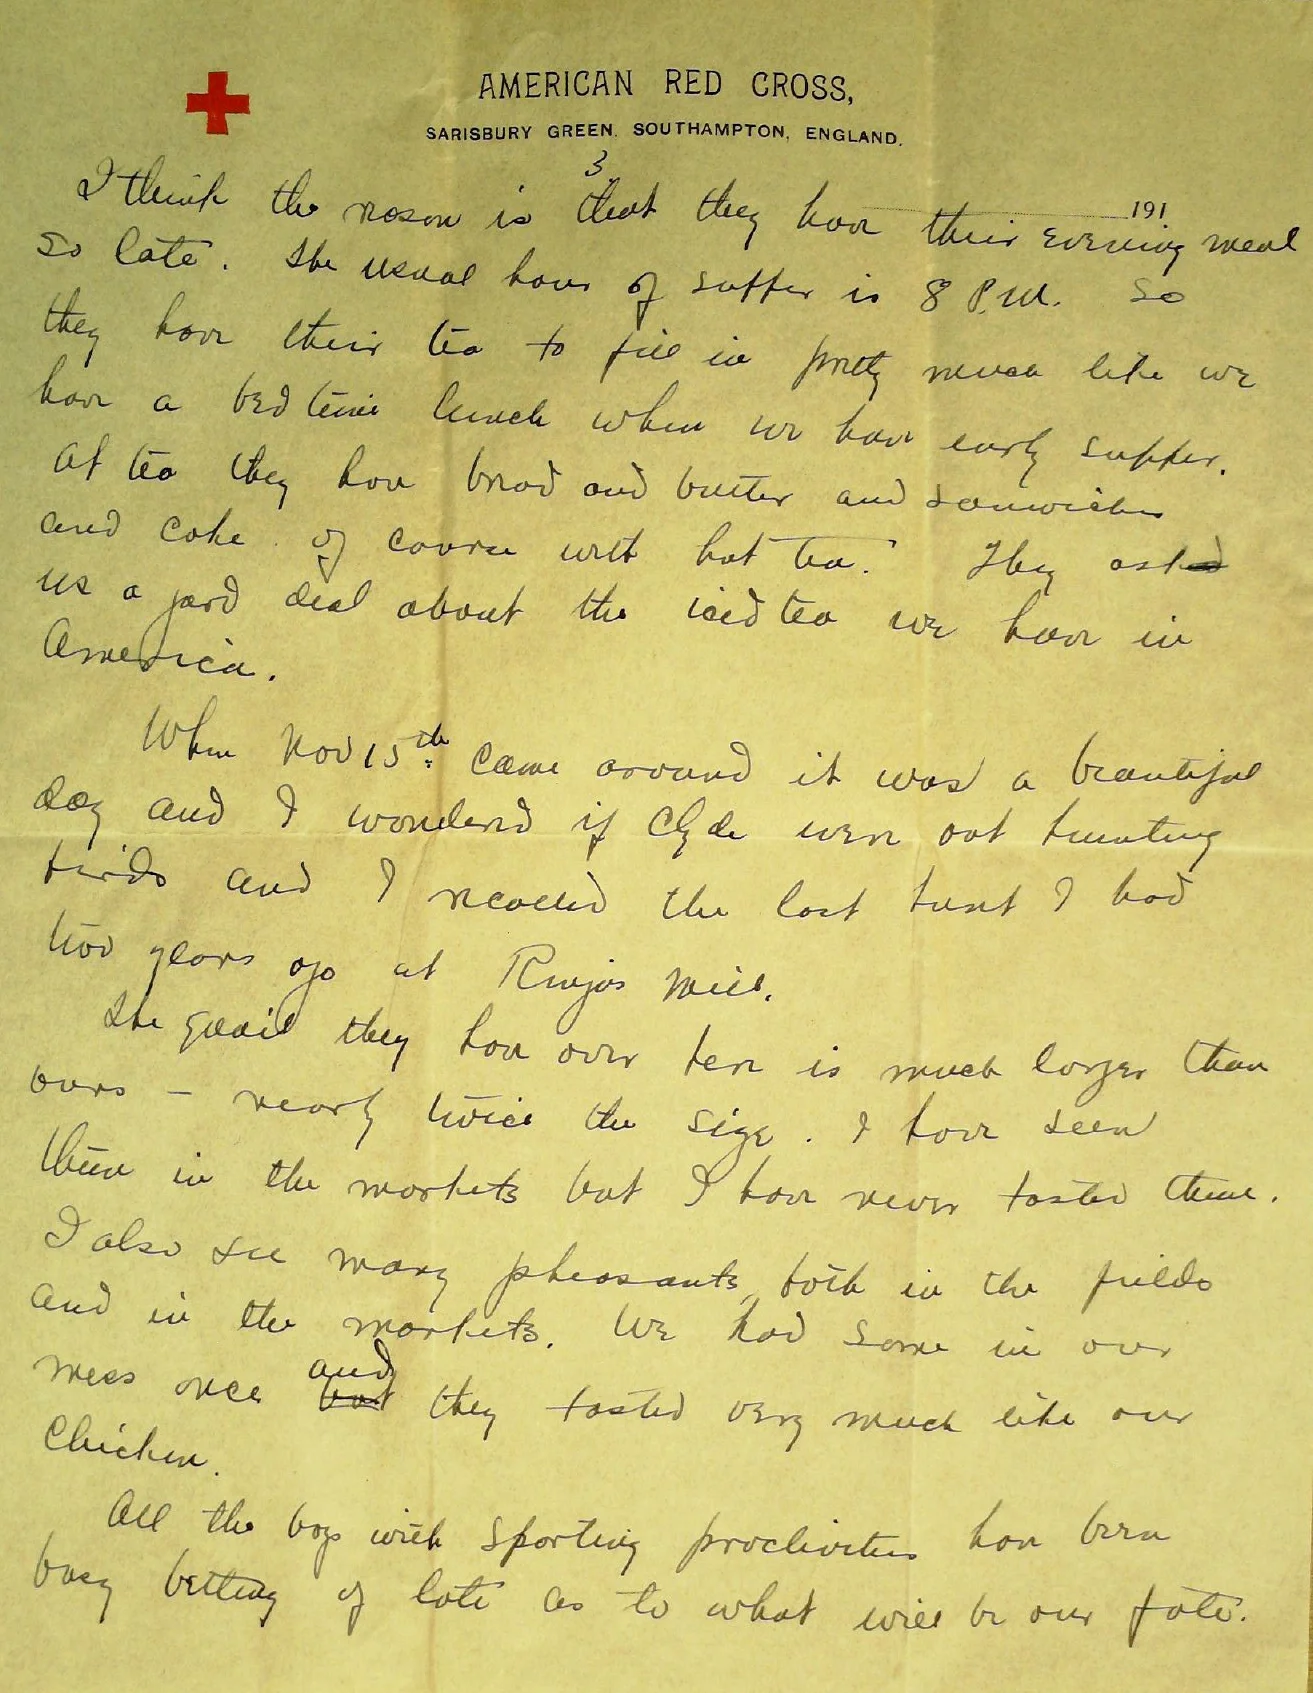 AMERICAN RED CROSS,
SARISBURY GREEN. SOUTHAMPTON, ENGLAND.
3
191
I think the reason is that they have their evening meal
so late. The usual hour of supper is 8 P.M. So
they have their tea to fill in pretty much like we
have a bed time lunch when we have early supper.
At tea they have bread and butter and sanwiches
and cake of course with hot tea. They ask
us a good deal about the iced tea we have in
America.
When Nov 15th came around it was a beautiful
day and I wondered if Clyde were out hunting
birds and I recalled the last hunt I had
two years ago at Mill.
The quail they have over here is much larger than
ours - nearly twice the size. I have seen
them in the markets but I have never tasted them.
I also see many pheasants, both in the fields
and in the markets. We had some in our
mess once and they tasted very much like our
chicken.
All the boys with sporting proclivities have been
busy betting of late as to what will be our fate.